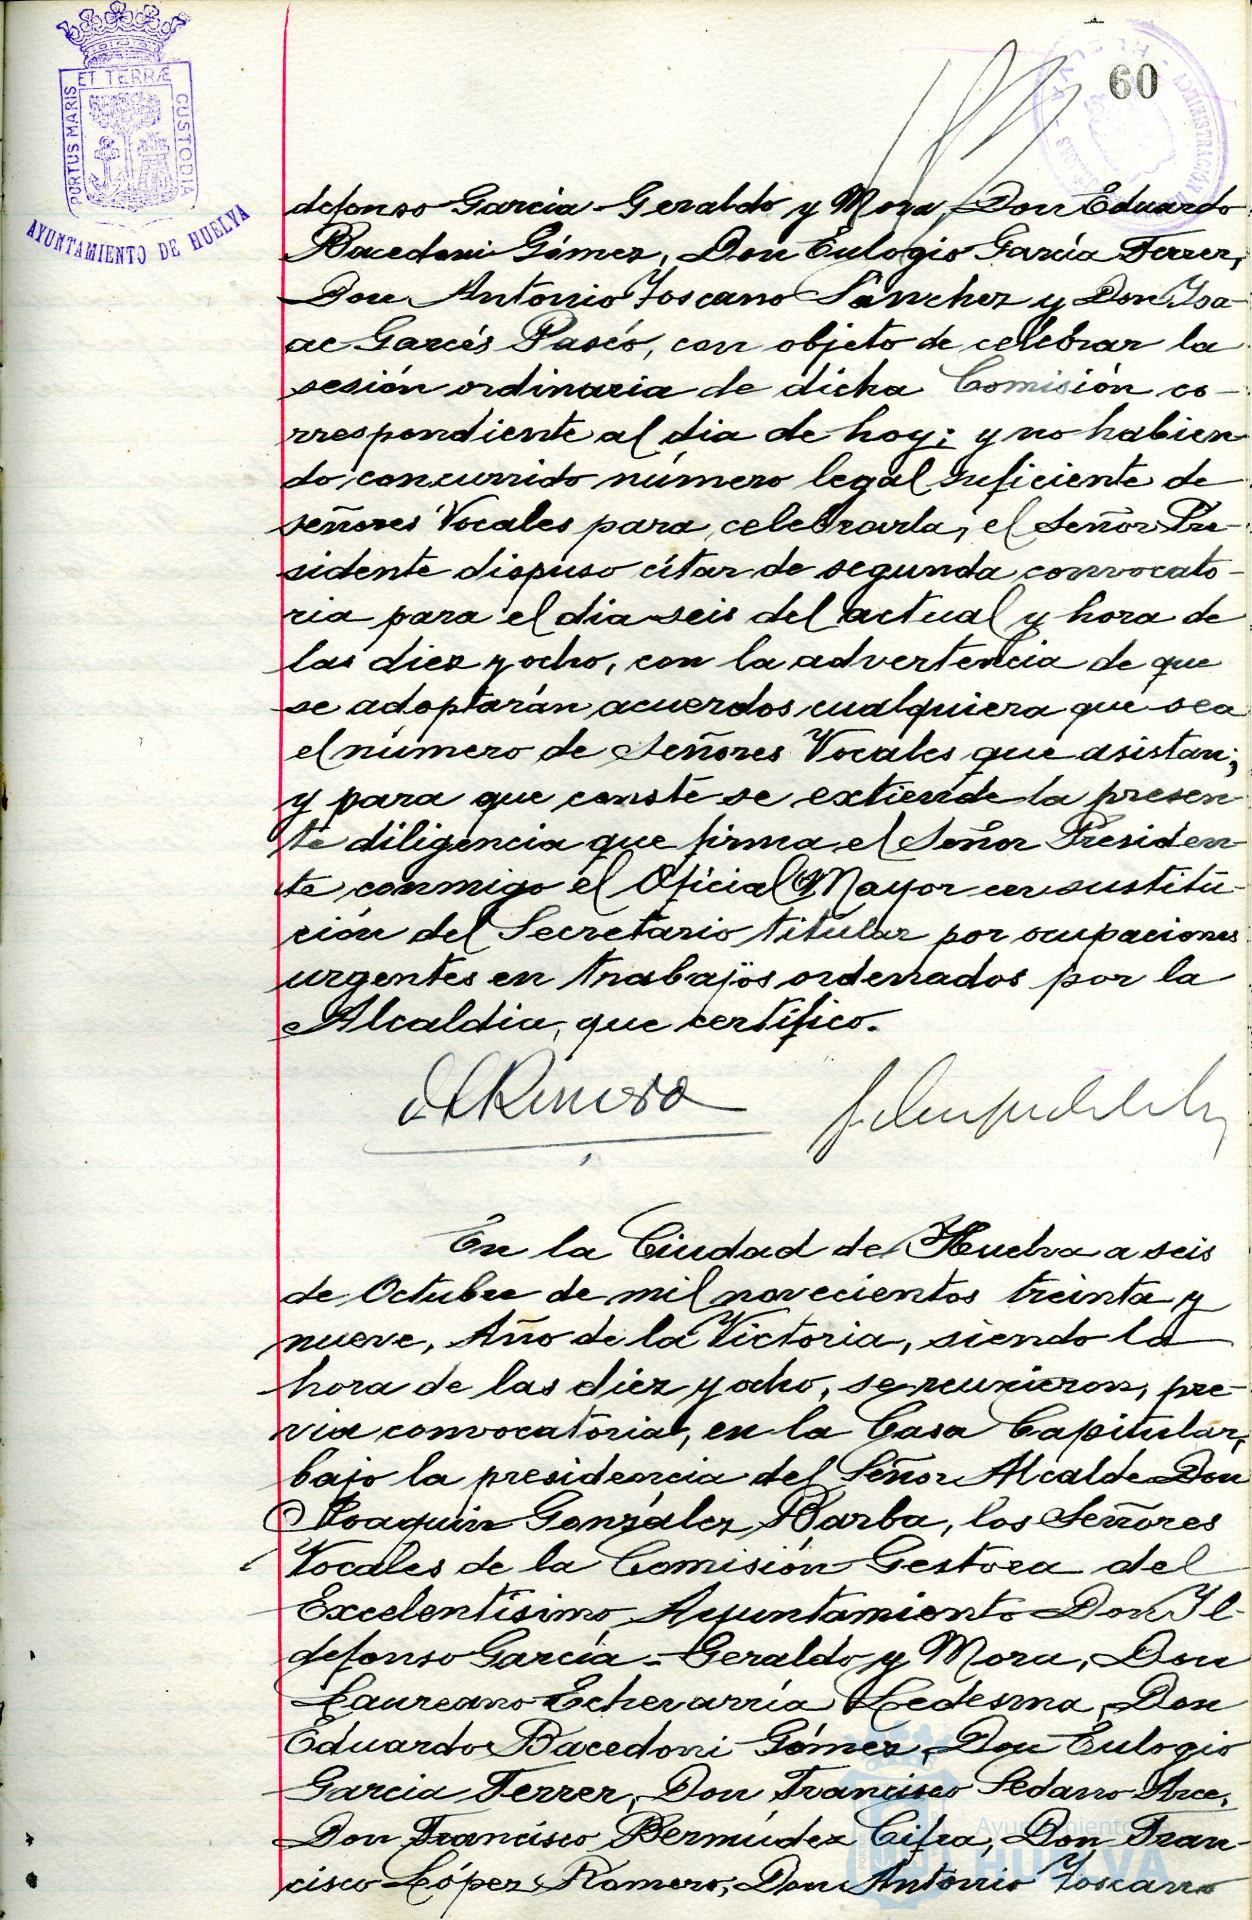 PORTUS MARIS ET TERRÆ CUSTODIA
AYUNTAMIENTO DE HUELVA
60
defonso García-Geraldo y Mora, Don Eduardo
Bacedoni Gómez, Don Eulogio García Ferrer,
Don Antonio Toscano Sánchez y Don Isa-
ac Garcés Paseó, con objeto de celebrar la
sesión ordinaria de dicha Comisión co-
rrespondiente al dia de hoy; y no habien
do concurrido número legal suficiente de
señores Vocales para celebrarla, el Señor Pre-
sidente dispuso citar de segunda convocato-
ria para el dia seis del actual y hora de
las diez y ocho, con la advertencia de que
se adoptarán acuerdos cualquiera que sea
el número de Señores Vocales que asistan;
y para que conste se extiende la presen
te diligencia que firma el Señor Presiden-
te conmigo el Oficial Mayor en sustitu-
ción del Secretario titular por ocupaciones
urgentes en trabajos ordenados por la
Alcaldia, que certifico.
En la Ciudad de Huelva a seis
de Octubre de mil novecientos treinta y
nueve, Año de la Victoria, siendo la
hora de las diez y ocho, se reunieron, pre-
via convocatoria, en la Casa Capitular,
bajo la presidencia del Señor Alcalde Don
Joaquin González Barba, los Señores
Vocales de la Comisión Gestora del
Excelentísimo Ayuntamiento Don Il-
defonso García-Geraldo y Mora, Don
Laureano Echevarría Ledesma, Don
Eduardo Bacedoni Gómez, Don Eulogio
Garcia Ferrer, Don Francisco Sedano Arce,
Don Francisco Bermúdez Cifra, Don Fran-
cisco López Romero, Don Antonio Toscano
Ayuntamiento de
HUELVA